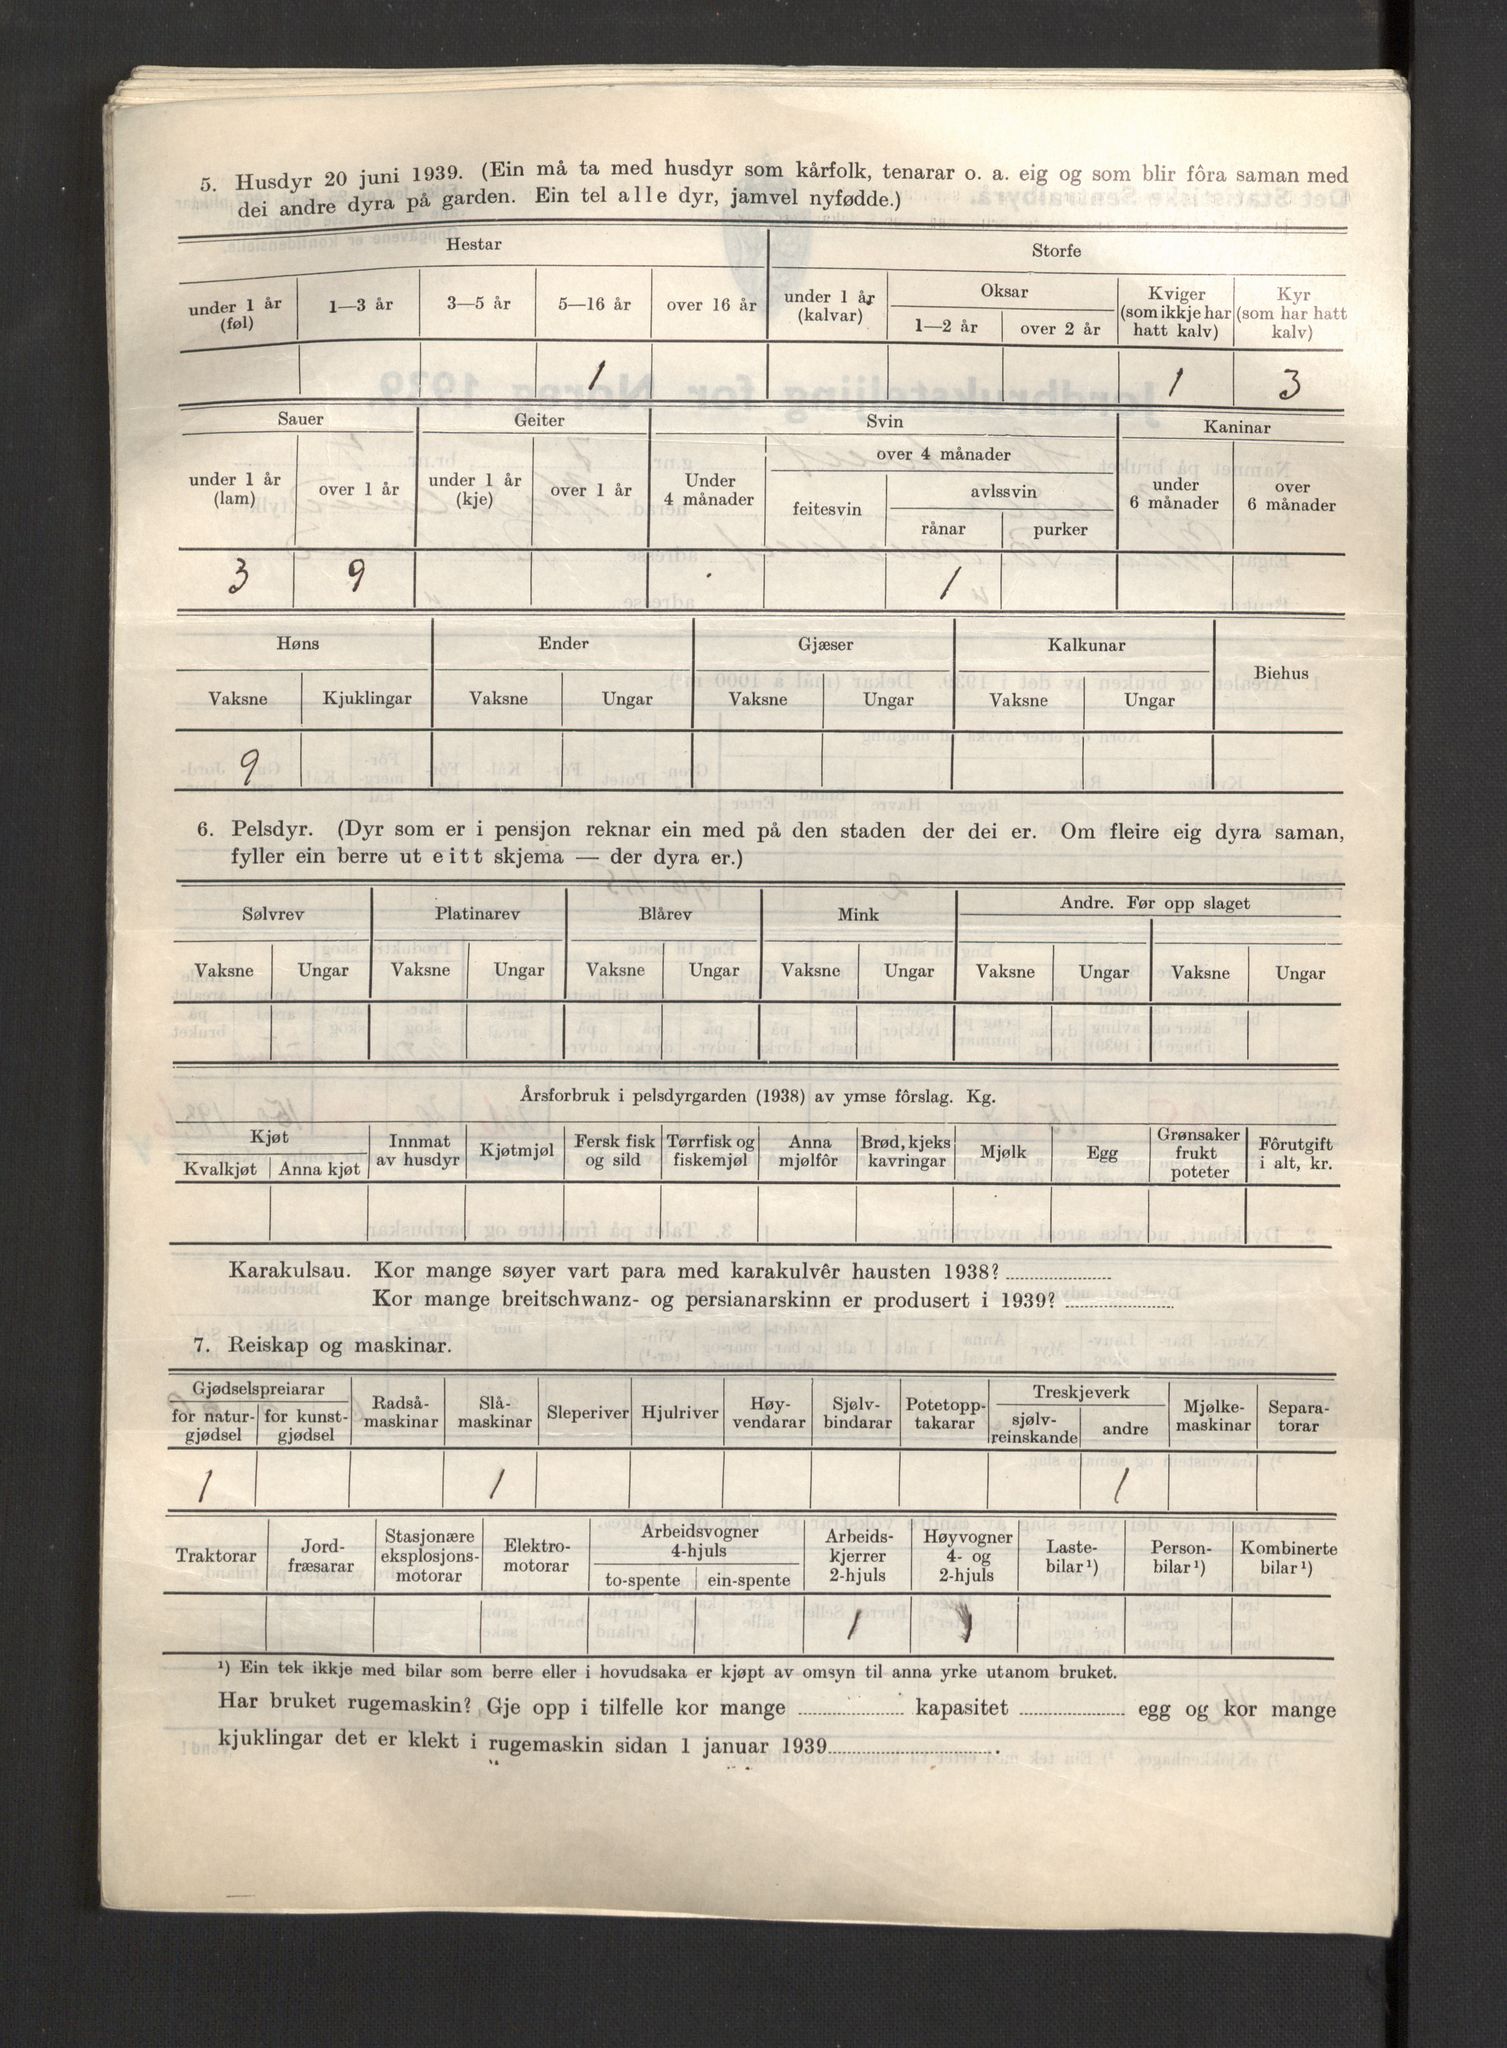 5. Husdyr 20 juni 1939. (Ein må ta med husdyr som kårfolk, tenarar o. a. eig og som blir fôra saman med
dei andre dyra på garden. Ein tel alle dyr, jamvel nyfødde.)
Hestar Storfe
under 1 år (føl) 1—3 år 3—5 år 5—16 år over 16 år under 1 år (kalvar) Oksar 1—2 år over 2 år Kviger (som ikkje har hatt kalv) Kyr (som har hatt kalv)
1 1 3
Sauer Geiter Svin Kaninar
under 1 år (lam) over 1 år under 1 år (kje) over 1 år Under 4 månader over 4 månader feitesvin avlssvin rånar purker under 6 månader over 6 månader
3 9 1
Høns Ender Gjæser Kalkunar Biehus
Vaksne Kjuklingar Vaksne Ungar Vaksne Ungar Vaksne Ungar
9
6. Pelsdyr. (Dyr som er i pensjon reknar ein med på den staden der dei er. Om fleire eig dyra saman,
fyller ein berre ut eitt skjema — der dyra er.)
Sølvrev Platinarev Blårev Mink Andre. Før opp slaget
Vaksne Ungar Vaksne Ungar Vaksne Ungar Vaksne Ungar Vaksne Ungar Vaksne Ungar
Årsforbruk i pelsdyrgarden (1938) av ymse fôrslag. Kg.
Kjøt Kvalkjøt Anna kjøt Innmat av husdyr Kjøtmjøl Fersk fisk og sild Tørrfisk og fiskemjøl Anna mjølfôr Brød, kjeks kavringar Mjølk Egg Grønsaker frukt poteter Fôrutgift i alt, kr.
Karakulsau. Kor mange søyer vart para med karakulvêr hausten 1938?
Kor mange breitschwanz- og persianarskinn er produsert i 1939?
7. Reiskap og maskinar.
Gjødselspreiarar for natur-gjødsel for kunst-gjødsel Radså-maskinar Slå-maskinar Sleperiver Hjulriver Høy-vendarar Sjølv-bindarar Potetopp-takarar Treskjeverk sjølv-reinskande andre Mjølke-maskinar Separa-torar
1 1 1
Traktorar Jord-fræsarar Stasjonære eksplosjons-motorar Elektro-motorar Arbeidsvogner 4-hjuls to-spente ein-spente Arbeids-kjerrer 2-hjuls Høyvogner 4- og 2-hjuls Laste-bilar ¹) Person-bilar ¹) Kombinerte bilar ¹)
1 1
¹) Ein tek ikkje med bilar som berre eller i hovudsaka er kjøpt av omsyn til anna yrke utanom bruket.
Har bruket rugemaskin? Gje opp i tilfelle kor mange kapasitet egg og kor mange
kjuklingar det er klekt i rugemaskin sidan 1 januar 1939 .